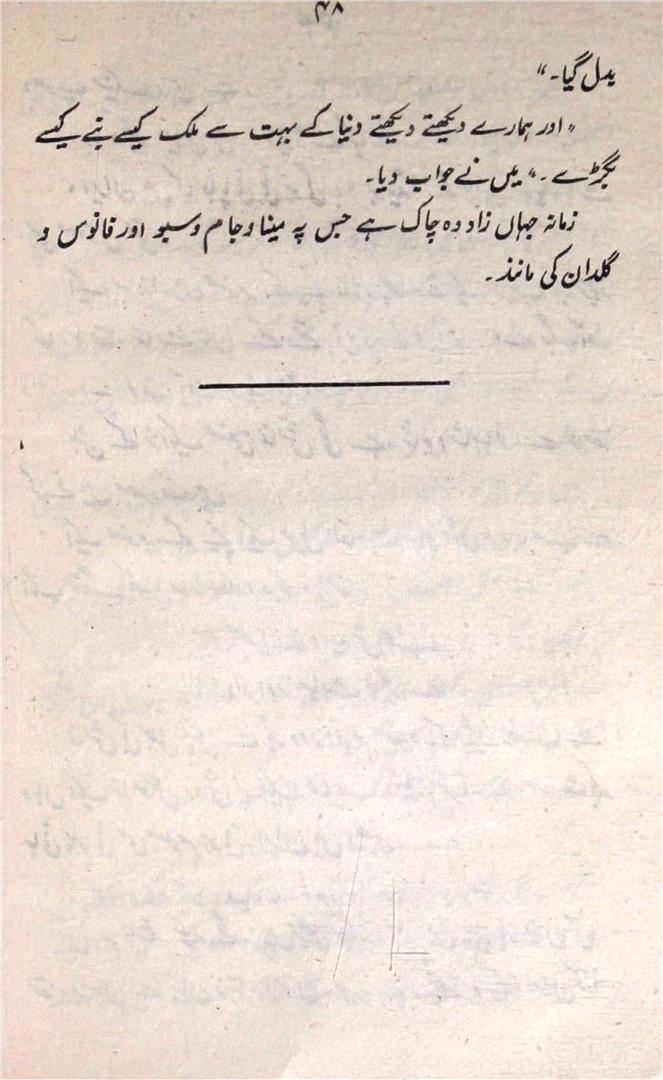 ۴۸
بدل گیا۔“
”اور ہمارے دیکھتے دیکھتے دنیا کے بہت سے ملک کیسے بنے کیسے
بگڑے۔“ میں نے جواب دیا۔
زمانہ جہاں زاد وہ چاک ہے جس پہ مینا و جام و سبو اور فانوس و
گلدان کی مانند۔